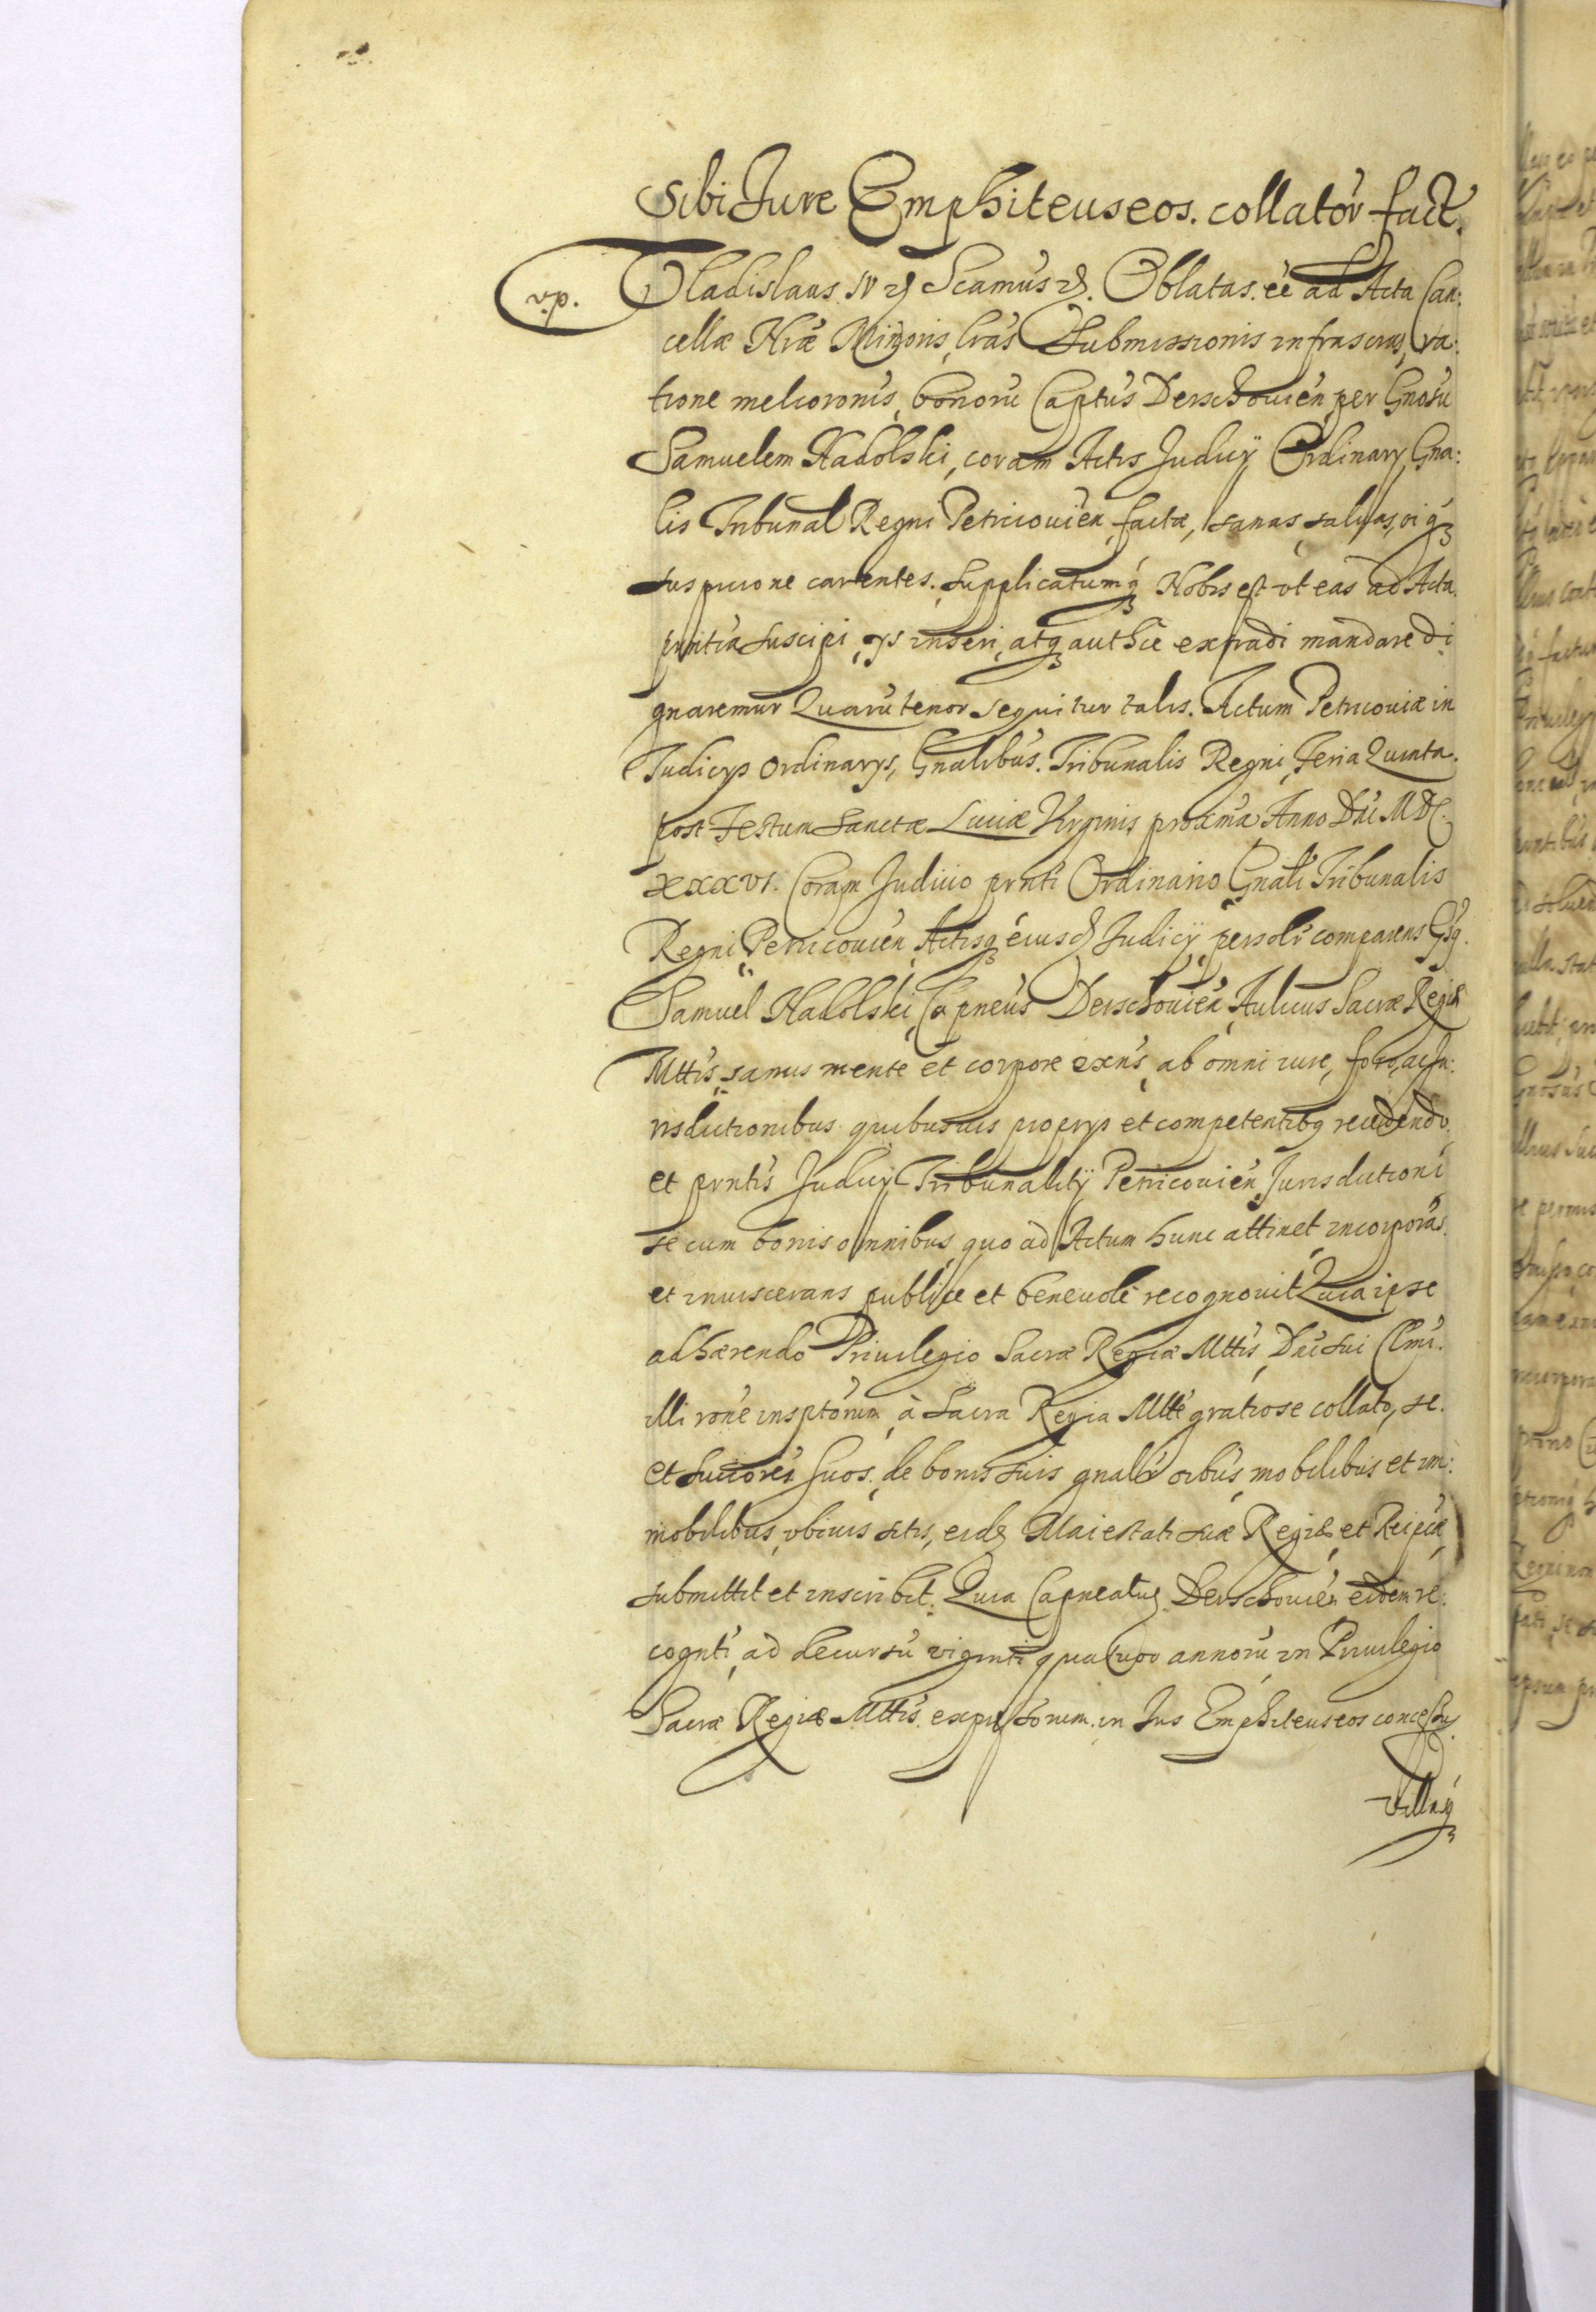 Sibi Jure Emphiteuseos. collator fact.
v.p.
Vladislaus IV etc Scamus etc. Oblatas. eē ad Acta Can:
cellæ Nræ Minoris, lras Submissionis infrascras, ra:
tione melioronis, bonoru Captus Derschouien, per Gnosu
Samuelem Nadolski, coram Actis Judicÿ Ordinary, Gna:
lis Tribunal Regni Petricouien, factæ, sanas, saluas, oiq3
suspicione carentes. Supplicatumq3 Nobis est vt eas ad Acta
pntia suscipi, ijs inseri, atq3 authce extradi mandare di
gnaremur Quaru tenor sequitur talis. Actum Petricouiæ in
Judicys Ordinarys, Gnalibus. Tribunalis Regni, Feria Quinta.
post Festum Sanctæ Luciæ Virginis proxima Anno Dni MDC.
XXXVI. Coram Judicio prnti Ordinario Gnali Tribunalis
Regni Petricouien, Actisq3 eiusd Judicÿ, persolr comparens Gsq.
Samuel Nadolski, Capneus Derschouien, Aulicus Sacræ Regiæ
Mttis, sanus mente et corpore exns, ab omni iure, foro, ac Ju:
risdictionibus quibusuis proprys et competentibq recedendo,
et prntis Judicÿ Tribunalitÿ Petricouien, Jurisdictioni
se cum bonis omnibus, quo ad Actum hunc attinet incorporas.
et inuiscerans publice et beneuole recognouit Quia ipse
adhærendo Priuilegio Sacræ Regiæ Mttis, Dni sui Clmi.
illi rone insptorum, à Sacra Regia Mtte gratiose collato, se.
et Succores suos, de bonis suis gnalr oibus, mobilibus et im:
mobilibus, vbiuis sitis, eid Maiestati suæ Regiæ, et Reipcæ,
submittit et inscribit. Quia Capneatus Derschouien eidem re:
cognti, ad decursu viginti quatuor annoru in Priuilegio
Sacræ Regiæ Mttis. expressorum. in Jus Emphiteuseos concessus.
Villasq3